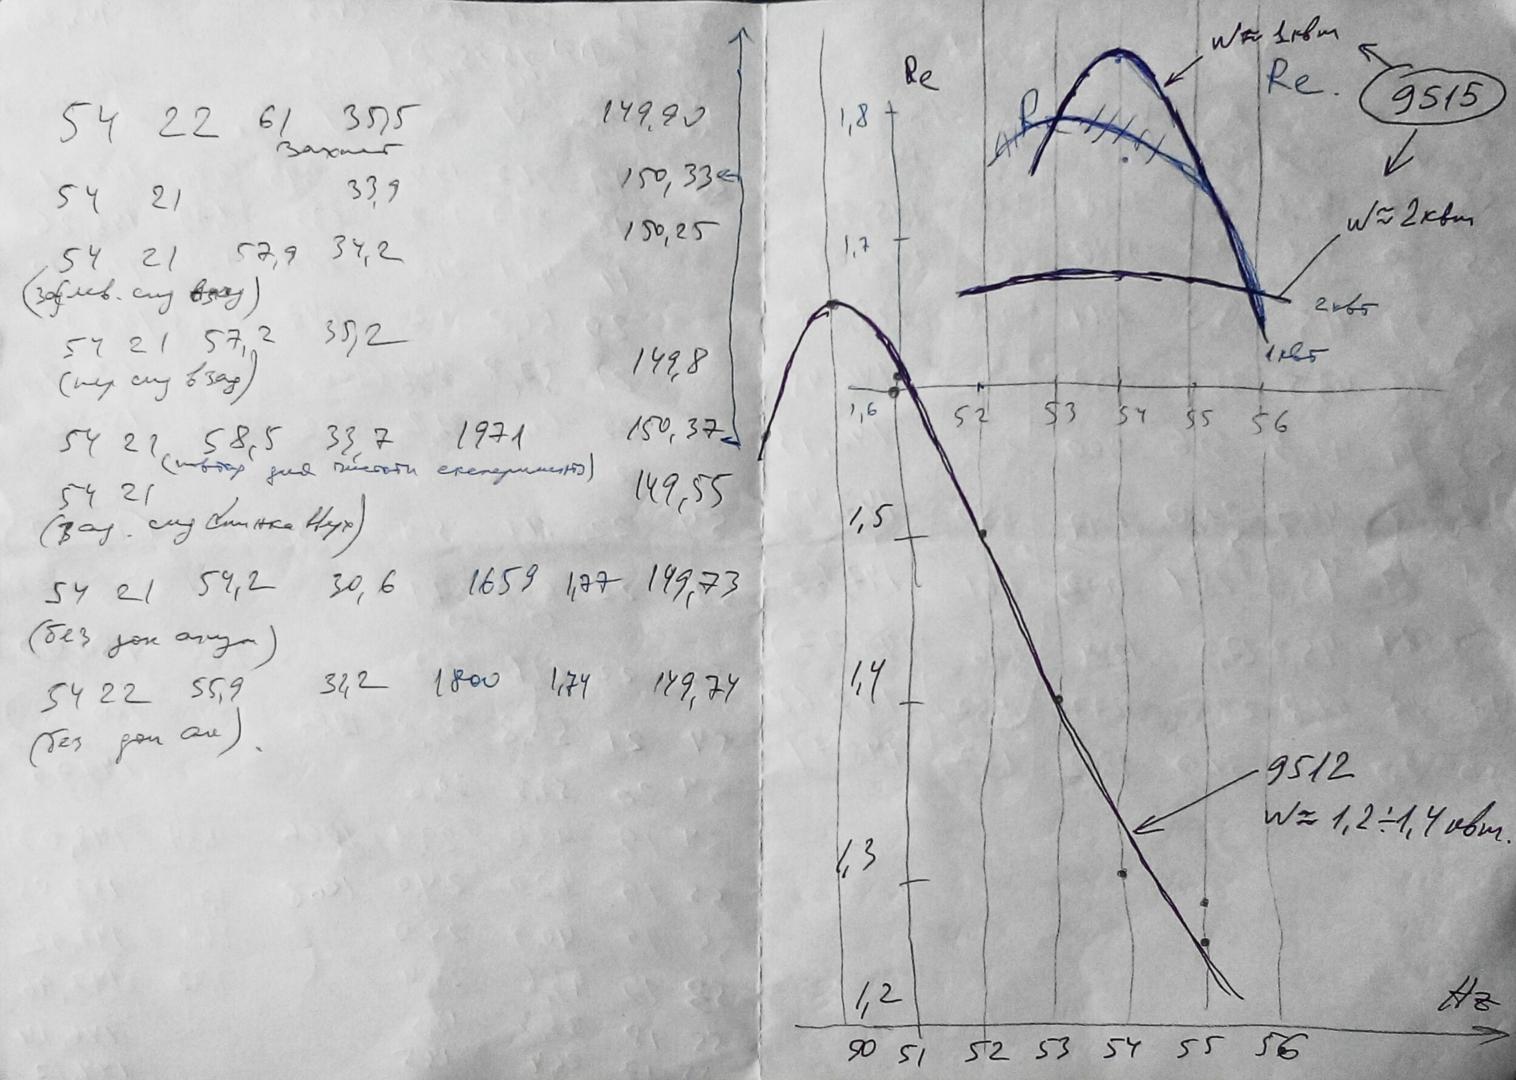 54 22 61 35,5 149,90
Захист
54 21 33,9 150,33
150,25
54 21 57,9 34,2
54 21 57,2 35,2
149,8
54 21 58,5 33,7 1971 150,37
54 21 149,55
54 21 54,2 30,6 1659 1,77 149,73
(без доп
54 22 55,9 32,2 1800 1,74 149,74
(без доп
Re
W≈1квт
Re.
9515
R
1,8
W≈2квт
1,7
2квт
1квт
1,6 52 53 54 55 56
1,5
1,4
9512
W≈1,2÷1,4 квт.
1,3
1,2
Hz
90 51 52 53 54 55 56